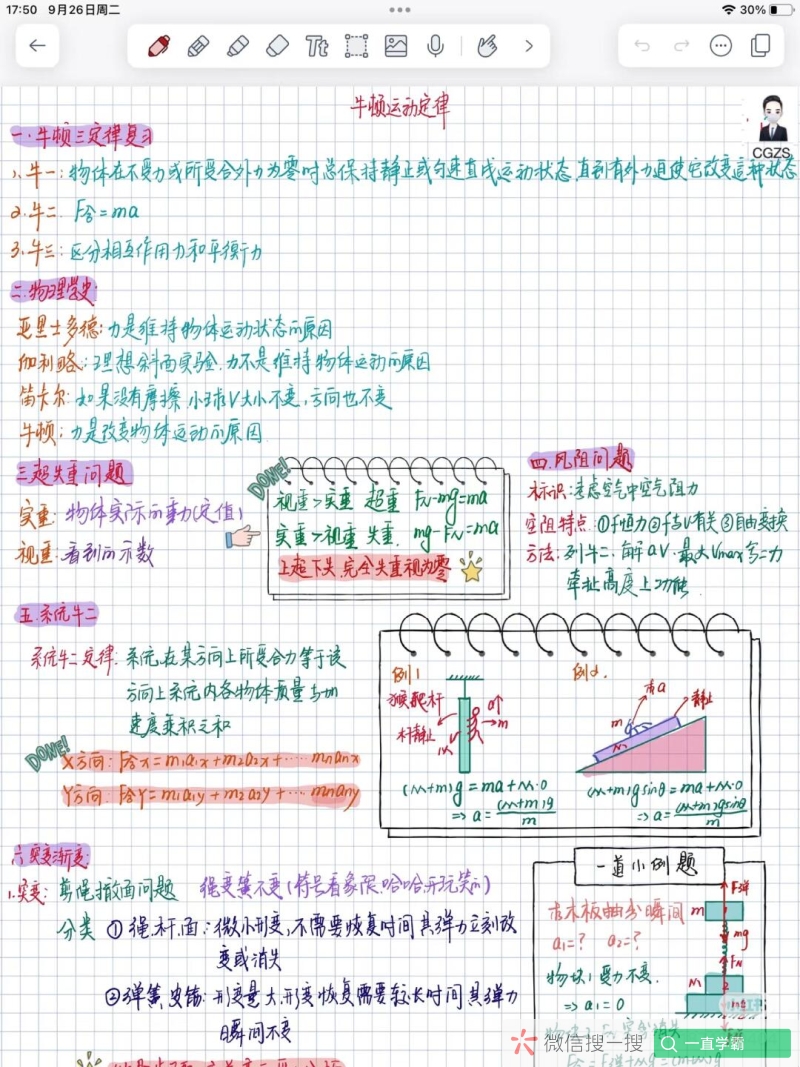 17:50 9月26日周二
30%
牛顿运动定律
CGZS
一.牛顿三定律复习
1.牛一:物体在不受力或所受合外力为零时总保持静止或匀速直线运动状态,直到有外力迫使它改变这种状态
2.牛二. F合=ma
3.牛三:区分相互作用力和平衡力
二.物理学史:
亚里士多德:力是维持物体运动状态的原因
伽利略:理想斜面实验.力不是维持物体运动的原因
笛卡尔:如果没有摩擦,小球V大小不变,方向也不变
牛顿:力是改变物体运动的原因
三.超失重问题
实重:物体实际的重力(定值)
视重:看到的示数
DONE!
视重>实重 超重 FN-mg=ma
实重>视重 失重. mg-FN=ma
上超下失,完全失重视为零
四.风阻问题
标识:考虑空气中空气阻力
空阻特点:①f恒力②f与V有关③自由变换
方法:列牛二.解aV.最大Vmax
牵扯高度上动能
五.系统牛二
系统牛二定律.系统在某方向上所受合力等于该
方向上系统内各物体质量与加
速度乘积之和
DONE!
X方向:F合x=m1a1x+m2a2x+……mnanx
Y方向:F合Y=m1a1y+m2a2y+……mnany
例1
猴爬杆
杆静止
a↑
m
M
(M+m)g=ma+M·0
⇒a=(M+m)g/m
例2.
a
静止
m
M
(M+m)gsinθ=ma+M·0
⇒a=(M+m)gsinθ/m
六.突变渐变:
1.突变:剪绳撤面问题 绳变簧不变(符号看象限,哈哈,开玩笑的)
分类 ①绳.杆.面:微小形变,不需要恢复时间其弹力立刻改
变或消失
②弹簧.皮筋:形变量大,形变恢复需要较长时间其弹力
瞬间不变
一道小例题
木板抽出瞬间
a1=? a2=?
物块1受力不变.
⇒a1=0
F弹
m
1
mg
FN
M
2
小红书
微信搜一搜
一直学霸